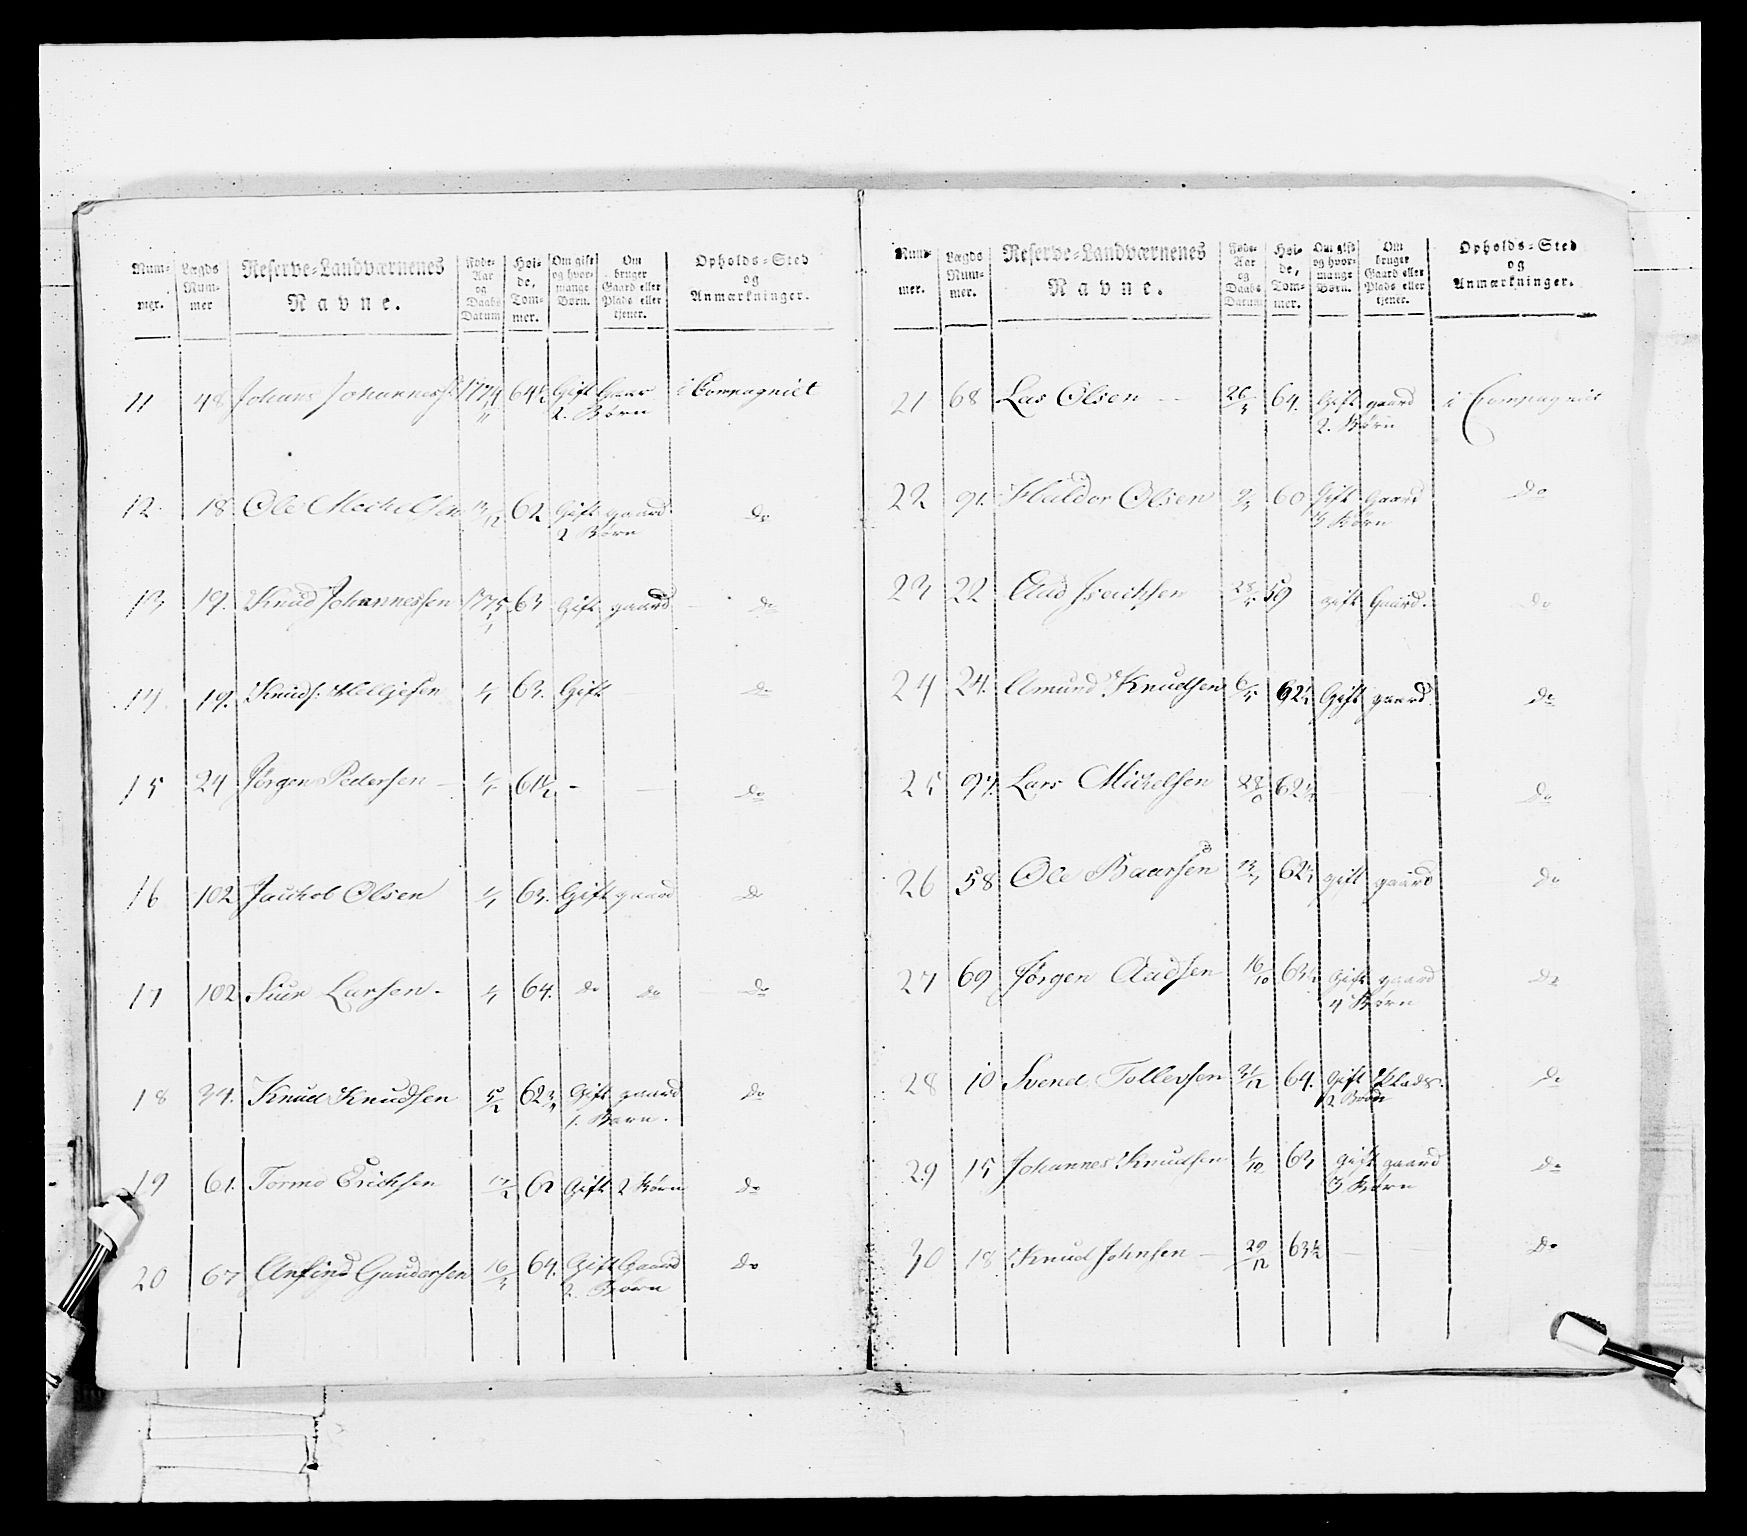 Num- Lægds Reserve-Landværnenes Føde- Høi- Om gift Om Opholds-Sted
mer. Num- Navne. Aar de, og hvor- bruger og
mer og Tom- mange Gaard eller Anmærkninger.
Daabs mer. Børn. Plads eller
Datum tjener.
11 48 Johans Johanness. 1774 64½ Gift Gaar i Compagniet
2. Børn
12. 18 Ole Mechelsen 62 Gift gaard do
2 Børn
13 19. Knud Johannessen 1775 63 Gift gaard do
14 19. Knuds: Helljesen 63. Gift do
15 24 Jørgen Pedersen 61½ - — do
16 102 Jachob Olsen 63. Gift gaard do
17 102 Siur Larsen. 64. do do do
18 34. Knud Knudsen 5/2 62¾ Gift gaard do
1. Barn.
19 61. Tormo Erichsen 62 Gift 2 Børn do
20 67 Anfind Gundersen 16/3 64. Gift Gaard do
2. Børn
Num- Lægds Reserve-Landværnenes Føde- Høi- Om gift Om Opholds-Sted
mer. Num- Navne. Aar de, og hvor- bruger og
mer. og Tom- mange Gaard eller Anmærkninger.
Daabs mer. Børn. Plads eller
Datum tjener.
21 68 Las Olsen — 26/3 64. Gift gaard i Compagniet
2. Børn
22 91. Haldor Olsen 60 Gift Gaard do
3 Børn
23 22 Aad 59 gift Gaard. do
24 24. Amund Knudsen 6/5 62½ Gift gaard. do
25 97. Lars Michelsen 62½ — — do
26 58 Ole Baarsen 62½ gift gaard do
27 69 Jørgen Aadsen 16/10 63½ Gift gaard do
4 Børn
28 10 Svend Tollevsen 31/12 64. Gift Plads. do
2 Børn
29 15 Johannes Knudsen 1/12 63 Gift gaard do
3 Børn
30 18 Knud Johnsen — 29/12 63½ — do